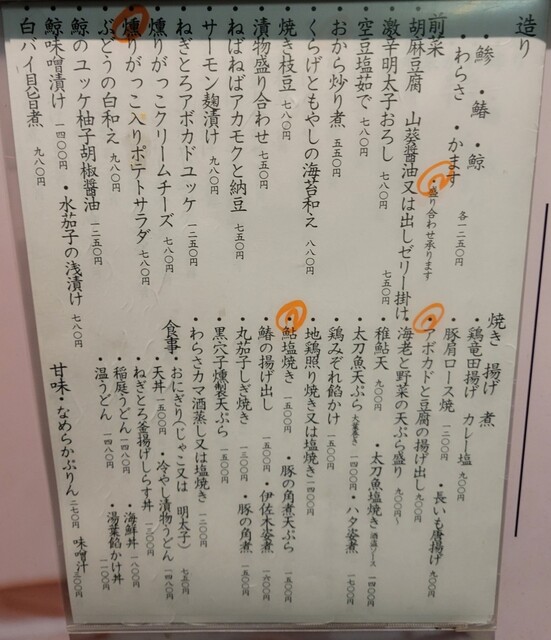 造り
鯵 ・ 鰆 ・ 鯨
・わらさ ・かます 各一二五〇円
・盛り合わせ承ります
前菜
胡麻豆腐 山葵醤油又は出しゼリー掛け 七五〇円
激辛明太子おろし 七八〇円
空豆塩茹で 七八〇円
おから炒り煮 五五〇円
くらげともやしの海苔和え 八八〇円
焼き枝豆 七八〇円
漬物盛り合わせ 七五〇円
ねばねばアカモクと納豆 七五〇円
サーモン麹漬け 九八〇円
ねぎとろアボカドユッケ 一二五〇円
燻りがっこクリームチーズ 七八〇円
燻りがっこ入りポテトサラダ 七八〇円
ぶどうの白和え 九八〇円
鯨のユッケ柚子胡椒醤油 一二五〇円
鯨味噌漬け 一四〇〇円 ・水茄子の浅漬け 七八〇円
白バイ貝旨煮 九八〇円
焼き 揚げ 煮
鶏竜田揚げ カレー塩 九〇〇円
豚肩ロース焼 一二〇〇円 ・長いも唐揚げ 九〇〇円
・アボカドと豆腐の揚げ出し 九〇〇円
海老と野菜の天ぷら盛り 九〇〇円〜
・稚鮎天 九〇〇円 ・太刀魚塩焼き 酒盗ソース 一四〇〇円
・太刀魚天ぷら 大葉巻き 一五〇〇円 ・ハタ姿煮 一七〇〇円
・鶏みぞれ餡かけ 一五〇〇円
・地鶏照り焼き又は塩焼き 一四〇〇円
・鮎塩焼き 一五〇〇円 ・豚の角煮天ぷら 一五〇〇円
・鰆の揚げ出し 一五〇〇円 ・伊佐木姿煮 一六〇〇円
・丸茄子しぎ焼き 一三〇〇円 ・豚の角煮 一五〇〇円
・黒穴子燻製天ぷら 一五〇〇円
・わらさカマ酒蒸し又は塩焼き 一二〇〇円
食事・おにぎり(じゃこ又は 明太子) 七五〇円
・天丼 一五〇〇円 ・冷やし漬物うどん 一四八〇円
・ねぎとろ釜揚げしらす丼 一三〇〇円
・稲庭うどん 一四八〇円 ・海鮮丼 一八〇〇円
・温うどん 一四八〇円 ・湯葉餡かけ丼 一一〇〇円
甘味・なめらかぷりん 二七〇円 味噌汁 二〇〇円